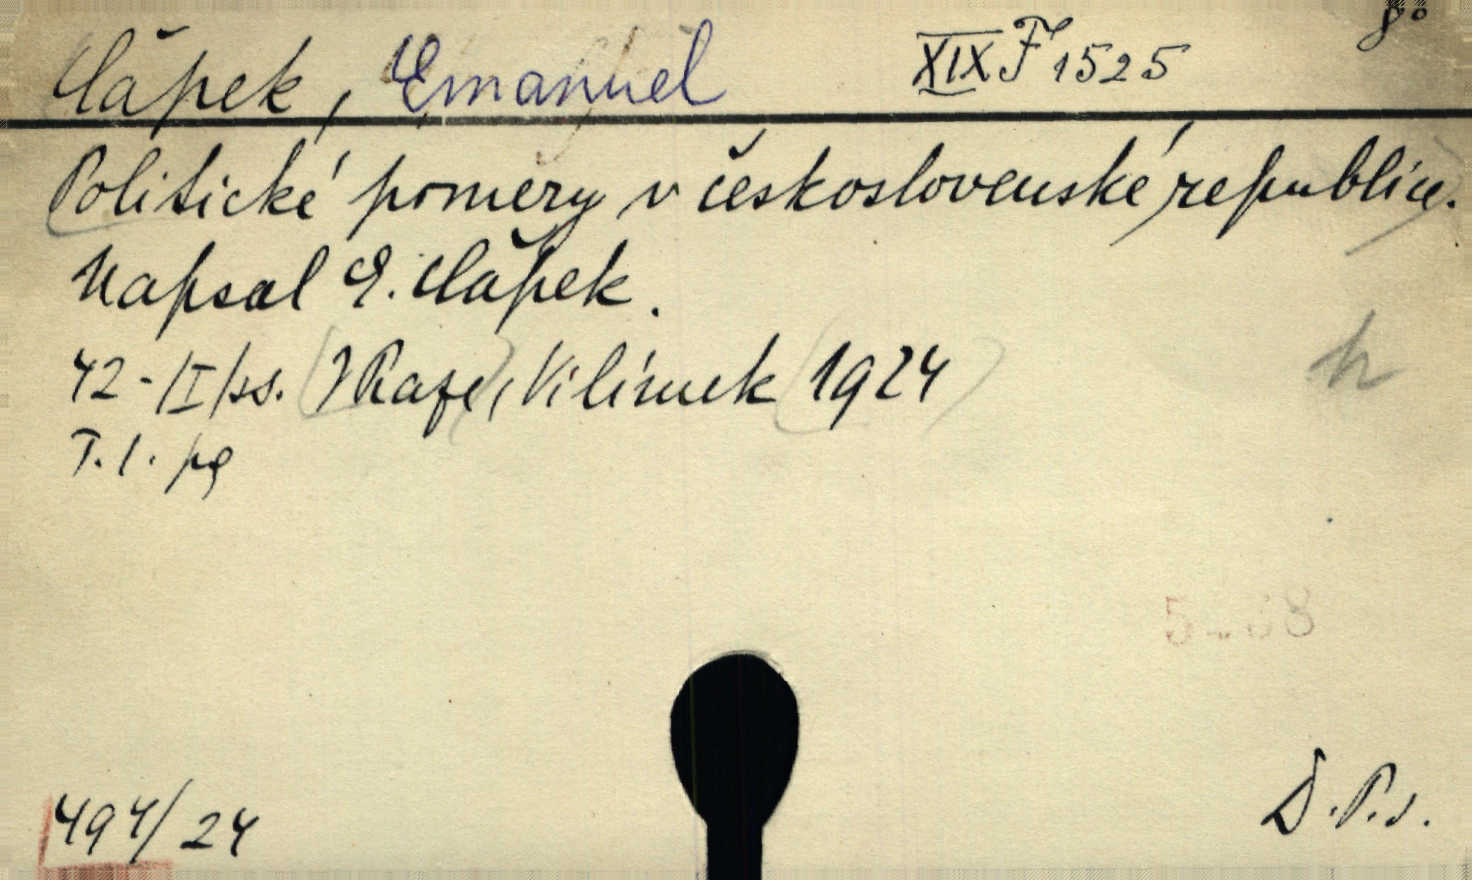 Čapek, Emanuel XIX F 1525 8°
Politické poměry v československé republice.
Napsal E. Čapek.
42-/I/ss. V Praze, Vilímek 1924
T. l. pg
494/24 D.P.s.